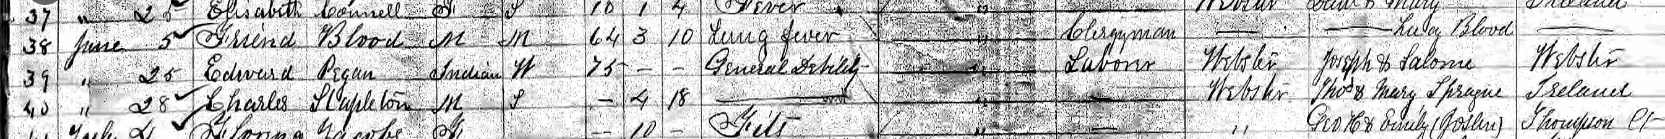 37 " 25 Elisabeth Connell F S 10 1 4 Fever " — Webster Mary Ireland
38 June 5 Friend Blood M M 64 3 10 Lung fever " Clergyman — — Lucy Blood —
39 " 25 Edward Pegan Indian W 75 — — General Debility " Laborer Webster Joseph & Salome Webster
40 " 28 Charles Stapleton M S — 4 18 — " — Webster Thos & Mary Sprague Ireland
July F — 10 — Fits " — " Geo H & Emily (Joslin) Thompson Ct